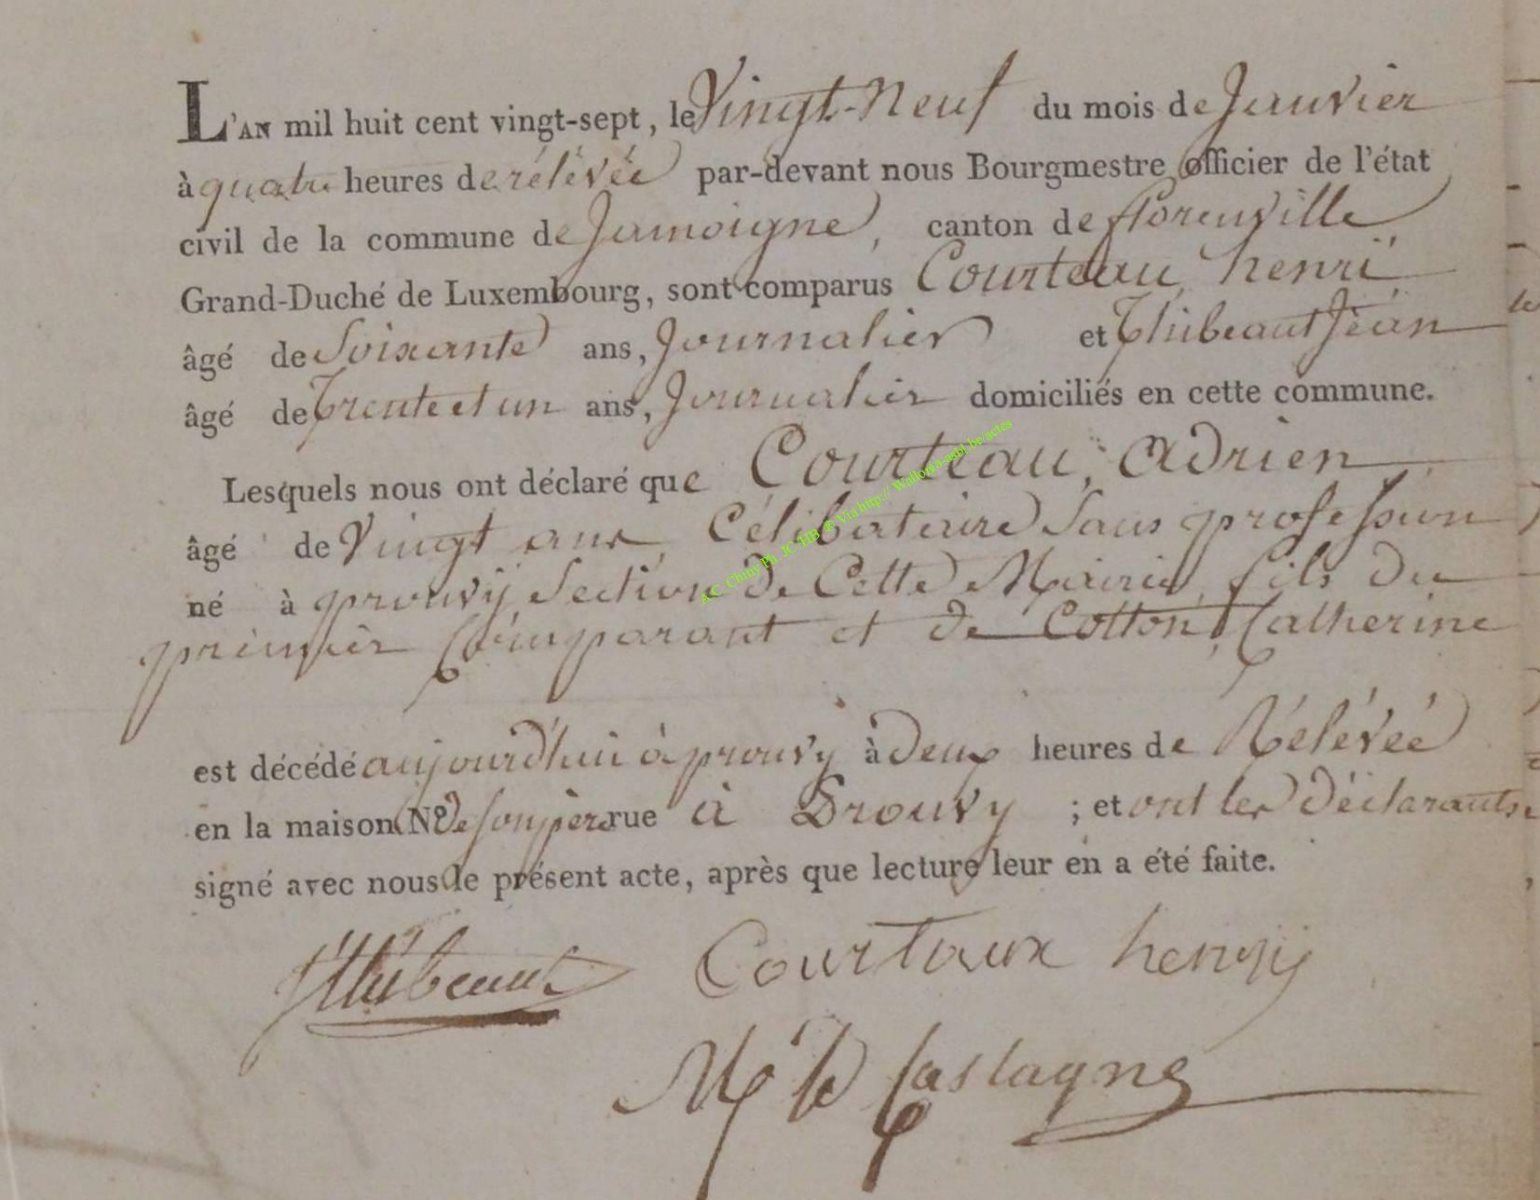 L'AN mil huit cent vingt-sept, le Vingt-Neuf du mois de Janvier
à quatre heures de rélévée par-devant nous Bourgmestre officier de l'état
civil de la commune de Jamoigne, canton de florenville
Grand-Duché de Luxembourg, sont comparus Courteau, henri
âgé de Soixante ans, Journalier et Thibeaut Jean
âgé de Trente et un ans, Journalier domiciliés en cette commune.
Lesquels nous ont déclaré que Courteau, Adrien
âgé de Vingt ans, Célibataire Sans profession
né à prouvÿ Section de Cette Mairie, fils du
premier Comparant et de Cotton, Catherine
est décédé aujourd'hui à prouvy à deux heures de Rélévée
en la maison N.º de son père rue à Prouvy ; et ont les déclarants
signé avec nous le présent acte, après que lecture leur en a été faite.
JThibeaut Courtaux henrÿ
A.C. Chiny Ph. JC HB ® Via http:// Wallonia-asbl.be/actes